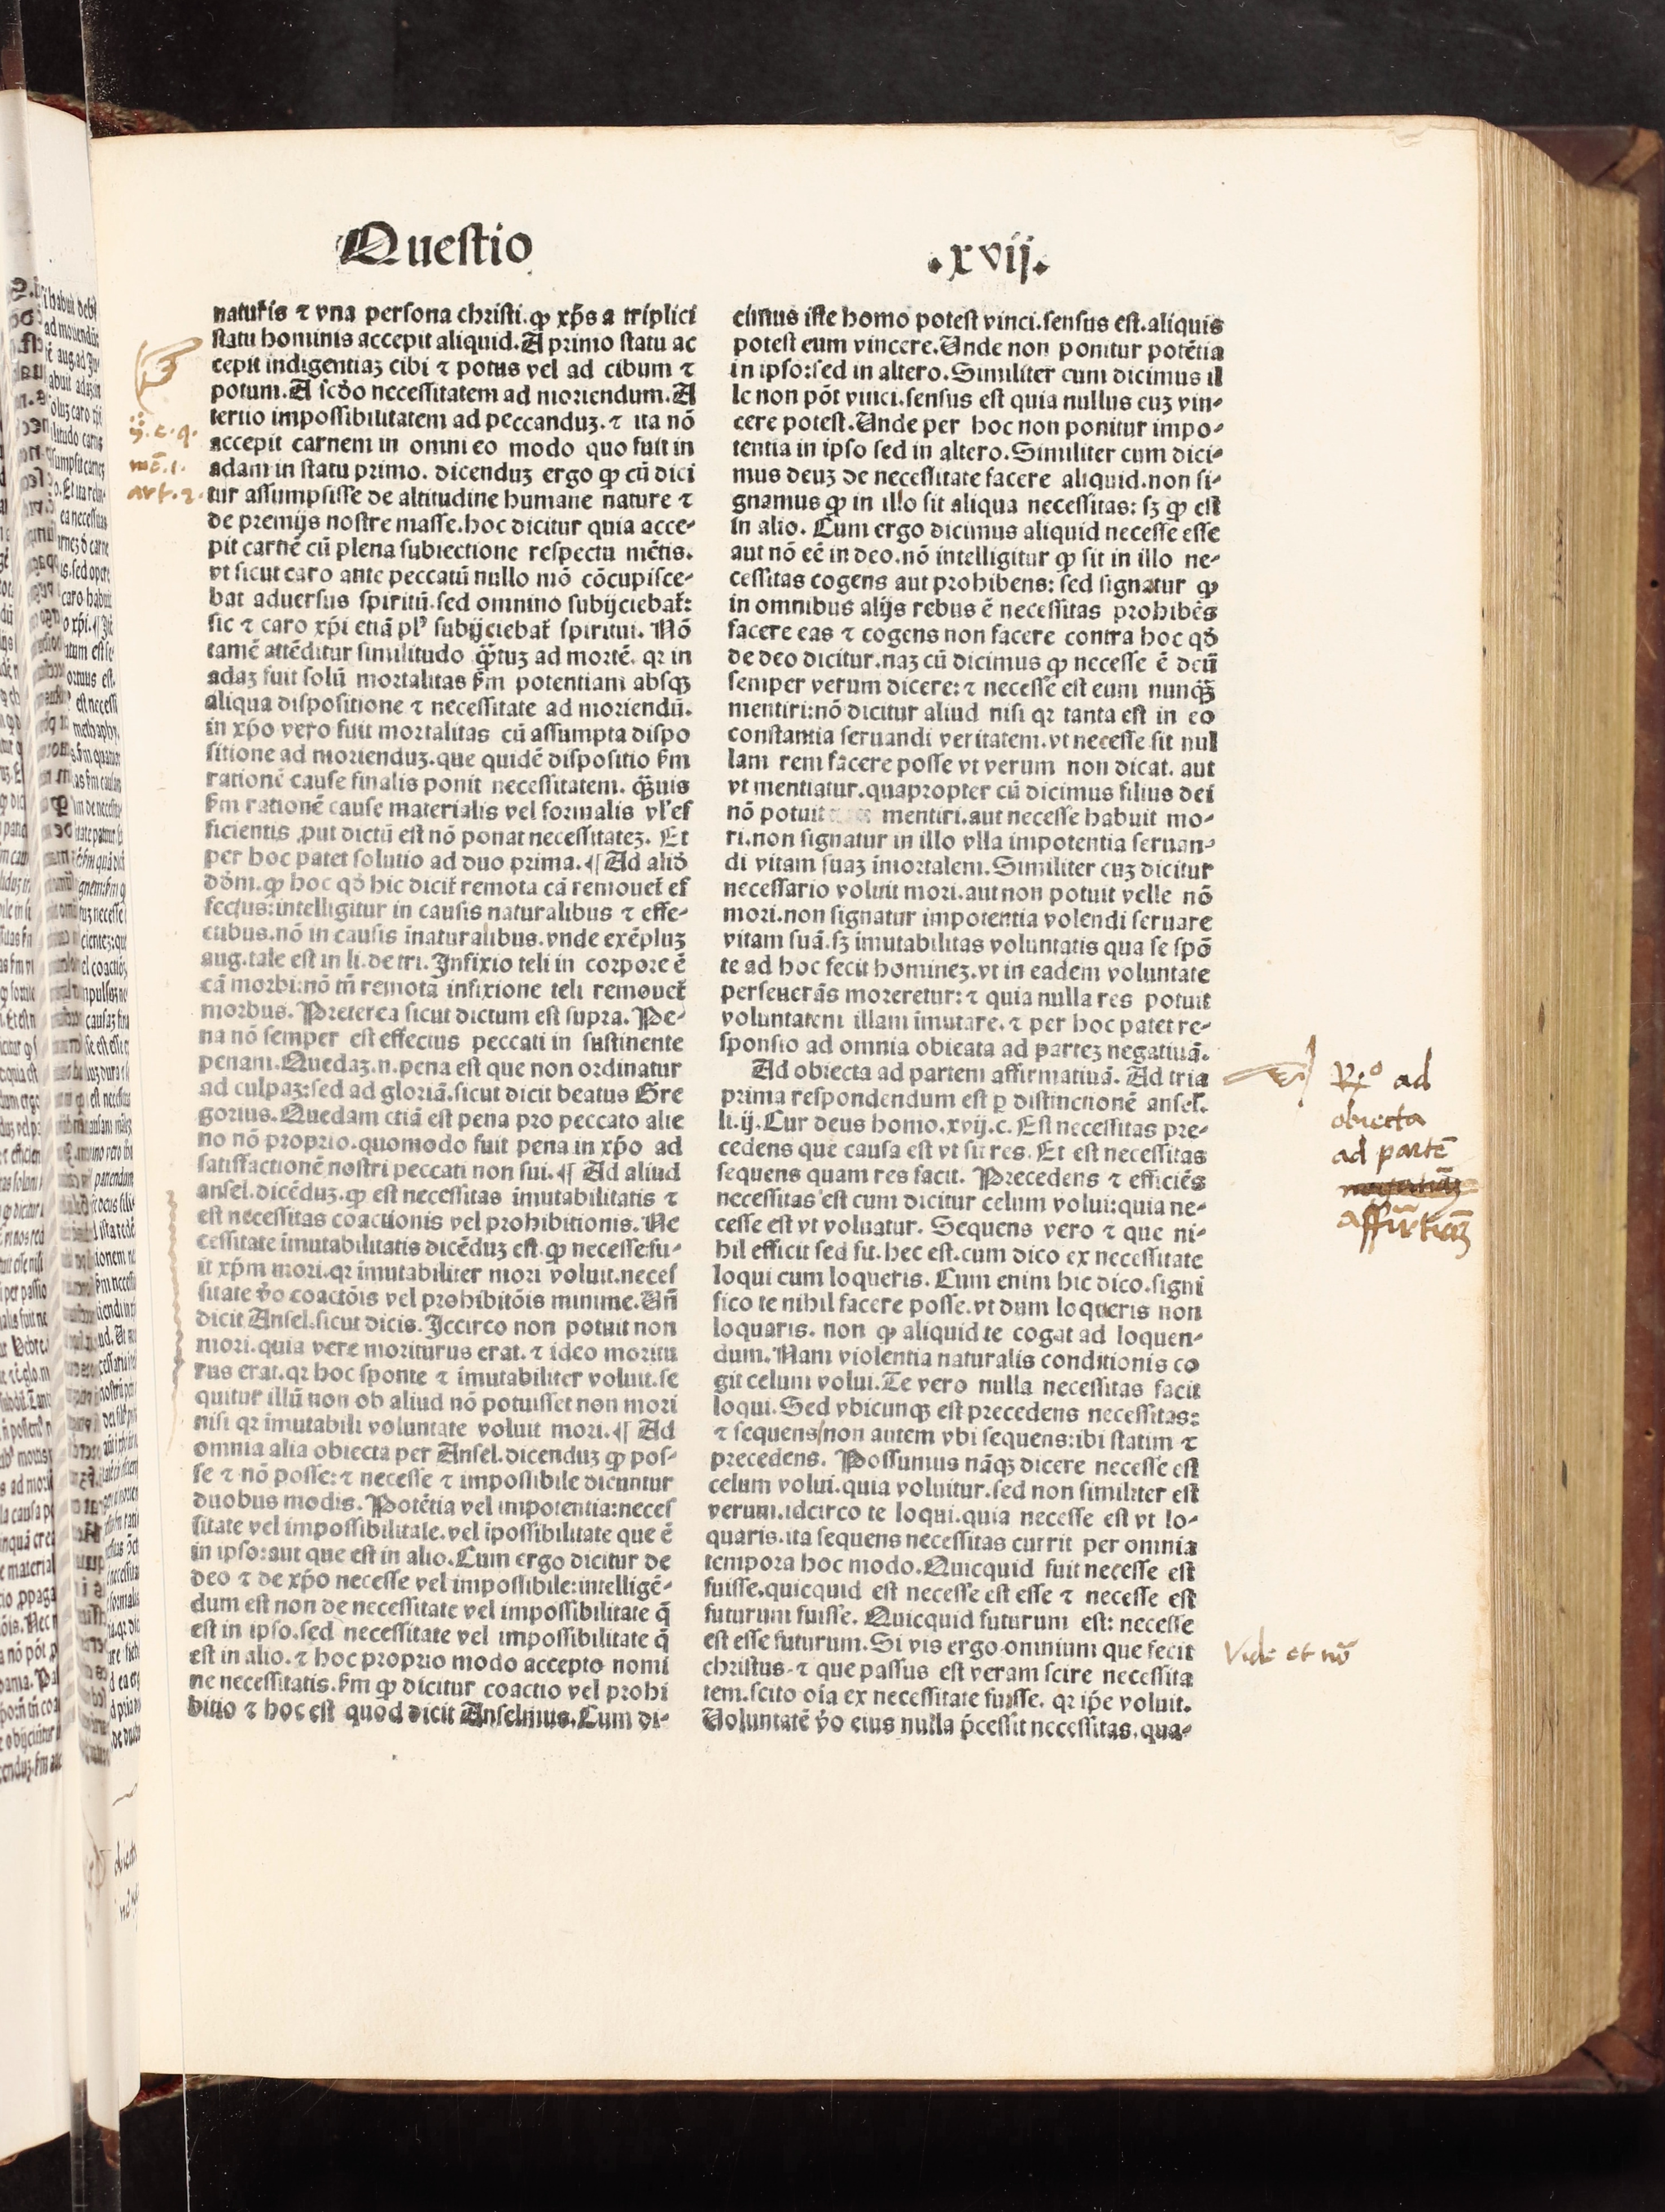 Questio
.xvij.
natur̄is ⁊ vna persona christi.ꝙ xp̄s a triplici
statu hominis accepit aliquid.A primo statu ac
cepit indigentiaꝫ cibi ⁊ potus vel ad cibum ⁊
potum.A scd̓o necessitatem ad moriendum.A
tertio impossibilitatem ad peccanduꝫ.⁊ ita nō
accepit carnem in omni eo modo quo fuit in
adam in statu primo. dicenduꝫ ergo ꝙ cū dici
tur assumpsisse de altitudine humane nature ⁊
de premijs nostre masse.hoc dicitur quia acce-
pit carnē cū plena subiectione respectu mētis.
vt sicut caro ante peccatū nullo mō cōcupisce-
bat aduersus spiritū.sed omnino subijciebat̄:
sic ⁊ caro xp̄i etiā plꝰ subijciebat̄ spiritui. Nō
tamē attēditur similitudo q̄ꝫtuꝫ ad mortē. qꝛ in
adaꝫ fuit solū mortalitas ẜm potentiam absqꝫ
aliqua dispositione ⁊ necessitate ad moriendū.
in xp̄o vero fuit mortalitas cū assumpta dispo
sitione ad morienduꝫ.que quidē dispositio ẜm
rationē cause finalis ponit necessitatem. q̄ꝫuis
ẜm rationē cause materialis vel formalis vl̓ ef
ficientis ꝓut dictū est nō ponat necessitateꝫ. Et
per hoc patet solutio ad duo prima.¶ Ad aliō
dōm.ꝙ hoc qd̓ hic dicit̄ remota cā remouet̄ ef
fectus:intelligitur in causis naturalibus ⁊ effe-
ctibus.nō in causis īnaturalibus.vnde exēpluꝫ
aug.tale est in li.de tri.Infixio teli in corpore ē
cā morbi:nō tn̄ remota infixione teli remouet̄
morbus. Preterea sicut dictum est supra. Pe-
na nō semper est effectus peccati in sustinente
penam.Quedaꝫ.n.pena est que non ordinatur
ad culpaꝫ:sed ad gloriā.sicut dicit beatus Gre
gorius. Quedam etiā est pena pro peccato alie
no nō proprio.quomodo fuit pena in xp̄o ad
satisfactionē nostri peccati non sui.¶ Ad aliud
ansel.dicēduꝫ.ꝙ est necessitas imutabilitatis ⁊
est necessitas coactionis vel prohibitionis. Ne
cessitate imutabilitatis dicēduꝫ est.ꝙ necesse fu-
it xp̄m mori.qꝛ imutabiliter mori voluit.neces
sitate v̓o coactōis vel prohibitōis minime.Vn̄
dicit Ansel.sicut dicis. Iccirco non potuit non
mori.quia vere moriturus erat.⁊ ideo moritu
rus erat.qꝛ hoc sponte ⁊ imutabiliter voluit.se
quitur illū non ob aliud nō potuisset non mori
nisi qꝛ imutabili voluntate voluit mori.¶ Ad
omnia alia obiecta per Ansel.dicenduꝫ ꝙ pos-
se ⁊ nō posse:⁊ necesse ⁊ impossibile dicuntur
duobus modis. Potētia vel impotentia:neces
sitate vel impossibilitate.vel īpossibilitate que ē
in ipso:aut que est in alio.Cum ergo dicitur de
deo ⁊ de xp̄o necesse vel impossibile:intelligē-
dum est non de necessitate vel impossibilitate q̄
est in ipso.sed necessitate vel impossibilitate q̄
est in alio.⁊ hoc proprio modo accepto nomi
ne necessitatis.ẜm ꝙ dicitur coactio vel prohi
bitio ⁊ hoc est quod dicit Anselmus.Cum di-
cimus iste homo potest vinci.sensus est.aliquis
potest eum vincere.Vnde non ponitur potētia
in ipso:sed in altero. Similiter cum dicimus il
le non pōt vinci.sensus est quia nullus euꝫ vin-
cere potest.Vnde per hoc non ponitur impo-
tentia in ipso sed in altero. Similiter cum dici-
mus deuꝫ de necessitate facere aliquid.non si-
gnamus ꝙ in illo sit aliqua necessitas: sꝫ ꝙ est
in alio. Cum ergo dicimus aliquid necesse esse
aut nō eē in deo.nō intelligitur ꝙ sit in illo ne-
cessitas cogens aut prohibens: sed signatur ꝙ
in omnibus alijs rebus ē necessitas prohibēs
facere eas ⁊ cogens non facere contra hoc qd̓
de deo dicitur.naꝫ cū dicimus ꝙ necesse ē deū
semper verum dicere:⁊ necesse est eum nunq̄ꝫ
mentiri:nō dicitur aliud nisi qꝛ tanta est in eo
constantia seruandi veritatem.vt necesse sit nul
lam rem facere posse vt verum non dicat. aut
vt mentiatur.quapropter cū dicimus filius dei
nō potuit mentiri.aut necesse habuit mo-
ri.non signatur in illo vlla impotentia seruan-
di vitam suaꝫ imortalem. Similiter cuꝫ dicitur
necessario voluit mori.aut non potuit velle nō
mori.non signatur impotentia volendi seruare
vitam suā.sꝫ imutabilitas voluntatis qua se spō
te ad hoc fecit homineꝫ.vt in eadem voluntate
perseuerās moreretur:⁊ quia nulla res potuit
voluntatem illam imutare.⁊ per hoc patet re-
sponsio ad omnia obiecta ad parteꝫ negatiuā.
Ad obiecta ad partem affirmatiuā. Ad tria
prima respondendum est ꝑ distinctionē ansel̄.
li.ij.Cur deus homo.xvij.c. Est necessitas pre-
cedens que causa est vt sit res. Et est necessitas
sequens quam res facit. Precedens ⁊ efficiēs
necessitas est cum dicitur celum volui:quia ne-
cesse est vt voluatur. Sequens vero ⁊ que ni-
hil efficit sed fit.hec est.cum dico ex necessitate
loqui cum loqueris. Cum enim hic dico.signi
fico te nihil facere posse.vt dum loqueris non
loquaris. non ꝙ aliquid te cogat ad loquen-
dum. Nam violentia naturalis conditionis co
git celum volui. Te vero nulla necessitas facit
loqui. Sed vbicunqꝫ est precedens necessitas:
⁊ sequens/non autem vbi sequens:ibi statim ⁊
precedens. Possumus nāqꝫ dicere necesse est
celum volui.quia voluitur.sed non similiter est
verum.idcirco te loqui.quia necesse est vt lo-
quaris.ita sequens necessitas currit per omnia
tempora hoc modo. Quicquid fuit necesse est
fuisse.quicquid est necesse est esse ⁊ necesse est
futurum fuisse. Quicquid futurum est: necesse
est esse futurum. Si vis ergo omnium que fecit
christus ⁊ que passus est veram scire necessita
tem.scito oīa ex necessitate fuisse. qꝛ ip̄e voluit.
Voluntatē v̓o eius nulla p̄cessit necessitas.qua-
mē.1.
art.2.
ad
obiecta
ad partē
Vide et